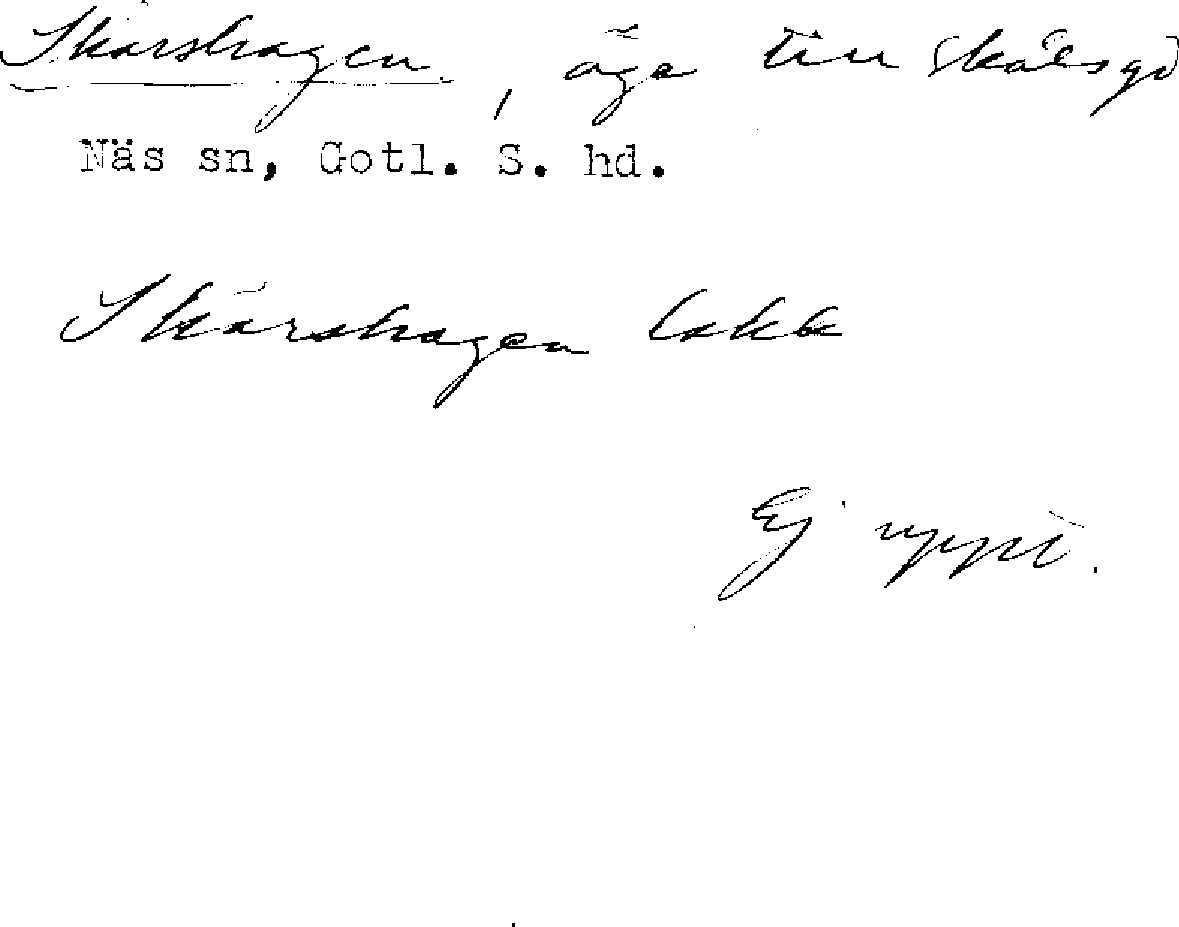 Skärshagen, äga till Skålsgd
Näs sn, Gotl. S. hd.
Skärshagen lskk
Ej uppt.